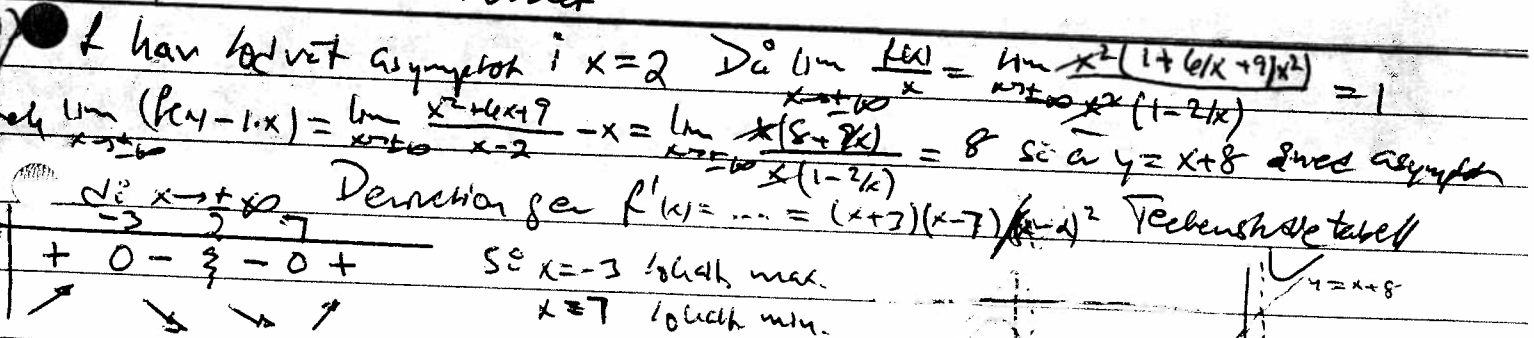 f har lodrät asymptot i x=2 Då lim x→±∞ f(x)/x = lim x→±∞ x²(1+6/x+9/x²)/x²(1-2/x) = 1
och lim x→±∞ (f(x)-1·x) = lim x→±∞ x²+6x+9/x-2 -x = lim x→±∞ x(8+9/x)/x(1-2/x) = 8 så är y=x+8 sned asymptot
då x→±∞ Derivation ger f'(x)= .... = (x+3)(x-7)/(x-2)² Teckenstudietabell
-3 2 7
+ 0 - ξ - 0 + så x=-3 lokalt max. y=x+8
↗ ↘ ↘ ↗ x=7 lokalt min.